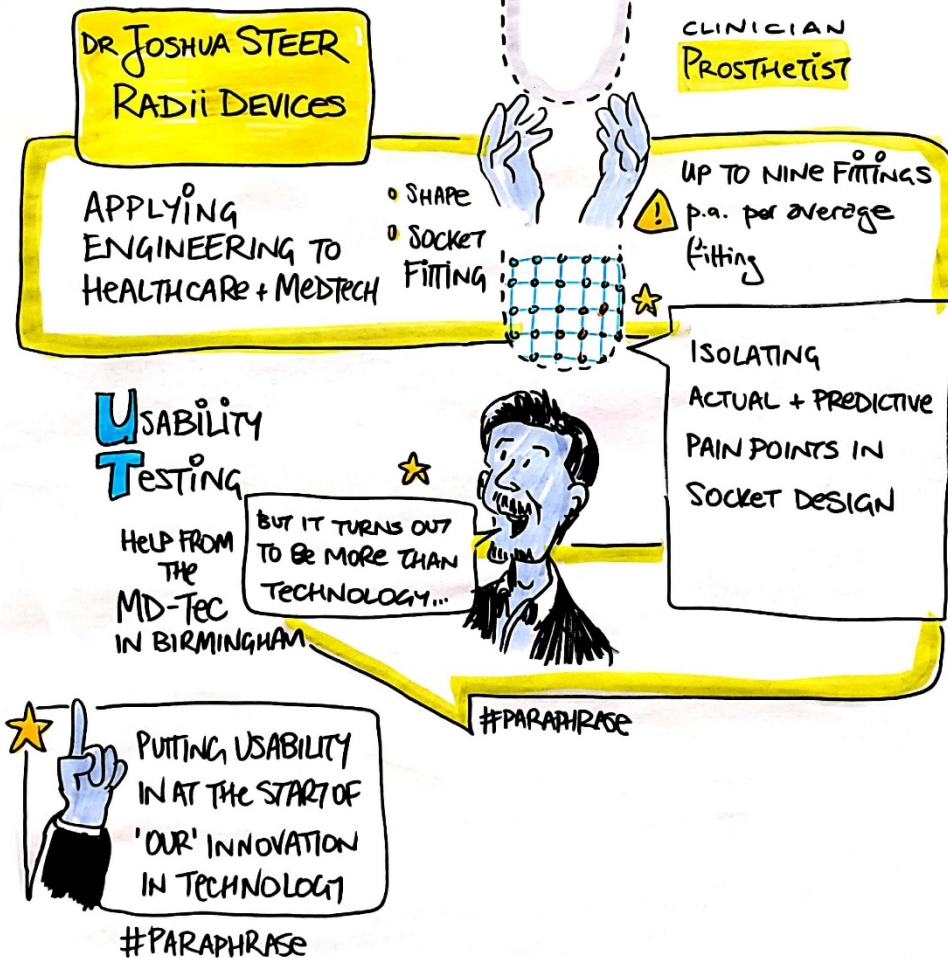 DR JOSHUA STEER
RADii DEVICES
CLINICIAN
PROSTHETiST
APPLYiNG
ENGINEERING TO
HeALTHCARe + MeDTecH
SHAPe
SOCKeT
FiTTiNG
UP TO NiNe FiTTiNGS
p.a. per average
fitting
ISOLATING
ACTUAL + PReDICTIVe
PAIN POINTS IN
SOCKeT DeSIGN
USABiLiTY
TesTiNG
HeLP FROM
THe
MD-Tec
IN BIRMINGHAM
BUT IT TURNS OUT
TO Be MORe THAN
TecHNOLOGY...
#PARAPHRASe
PUTTING USABILITY
IN AT THe START OF
'OUR' INNOVATION
IN TecHNOLOGY
#PARAPHRASe